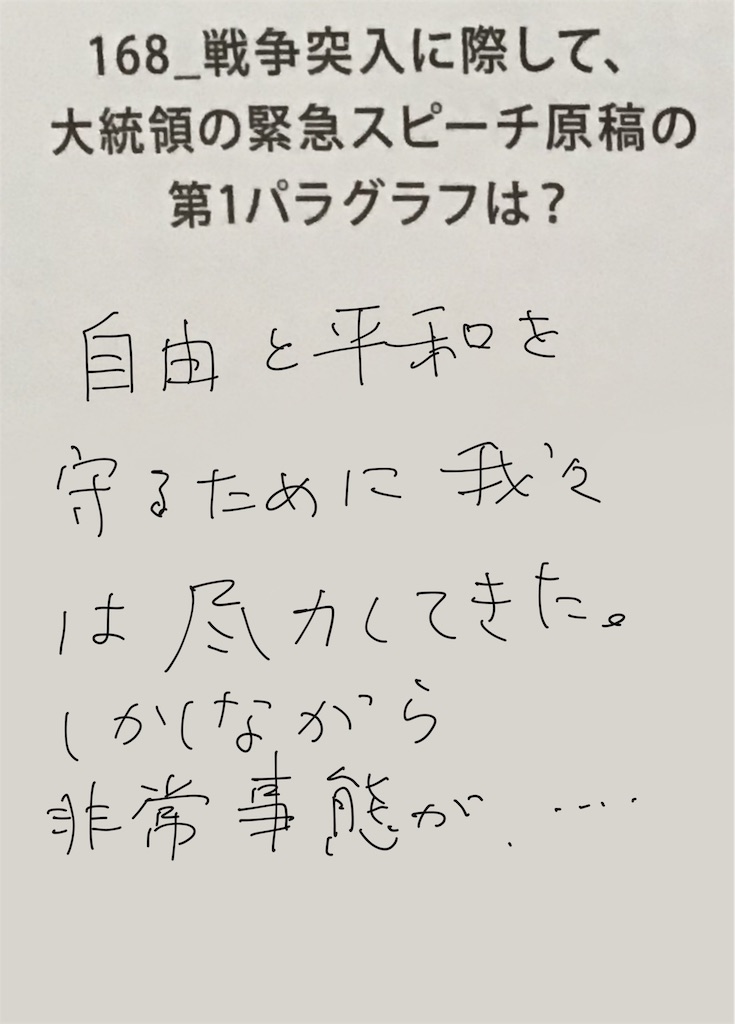 168_戦争突入に際して、
大統領の緊急スピーチ原稿の
第1パラグラフは？
自由と平和を
守るために我々
は尽力してきた。
しかしながら
非常事態が.....